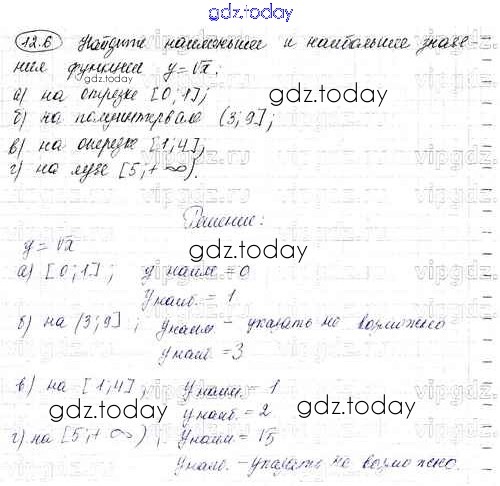 gdz.today
12.6 Найдите наименьшие и наибольшие значе-
ния функции y=√x:
а) на отрезке [0;1];
gdz.today
б) на полуинтервале (3;9];
в) на отрезке [1;4];
г) на луче [5;+∞).
Решение:
y=√x
gdz.today
а) [0;1]; y наим.=0
y наиб.=1
б) на (3;9]; y наим. – указать не возможно
y наиб.=3
в) на [1;4]; y наим.=1
y наиб.=2
gdz.today
gdz.today
г) на [5;+∞); y наим=√5
y наиб. – указать не возможно.